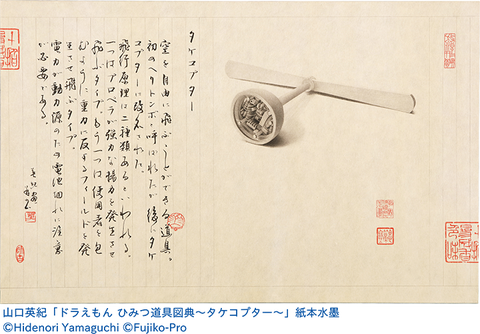 タケコプター
空を自由に飛ぶことができる道具。
初めヘリトンボと呼ばれたが後にタケ
コプターに改められた。
飛行原理は二種類あるといわれる。
一つはプロペラが強力な揚力を発生させ
飛ぶタイプ。もう一つは使用者を包
むように重力に反するフィールドを発
生させて飛ぶタイプ。
電力が動力源のため電池切れに注意
が必要である。
山口英紀「ドラえもん ひみつ道具図典～タケコプター～」紙本水墨
©Hidenori Yamaguchi ©Fujiko-Pro